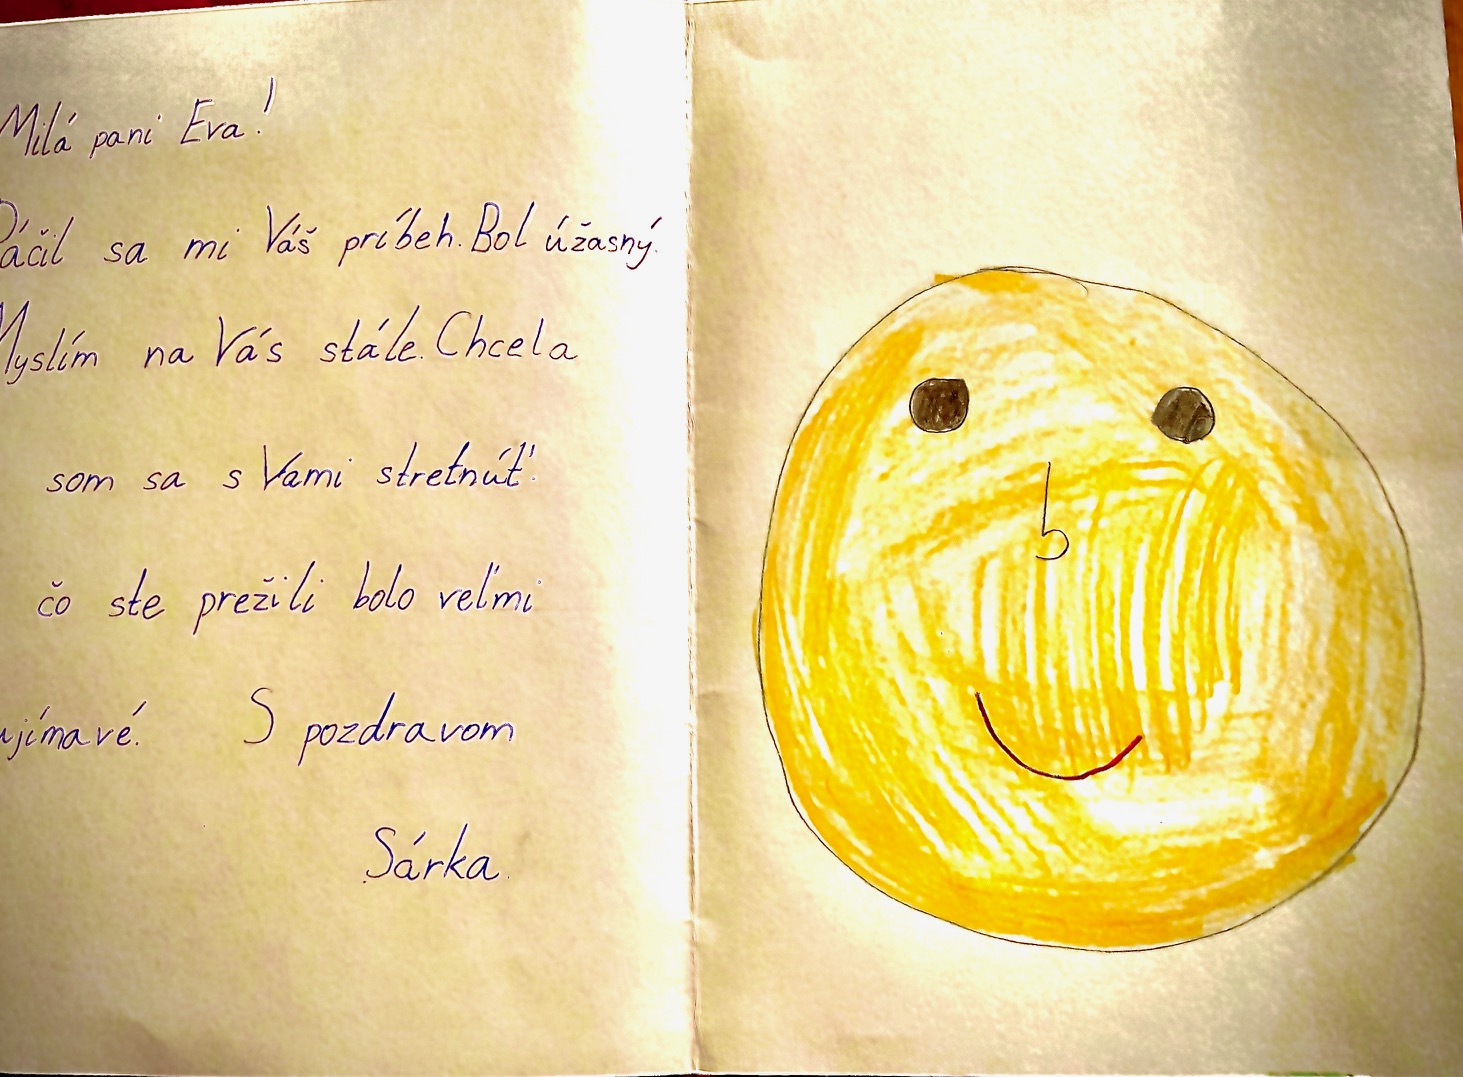 Milá pani Eva!
Páčil sa mi Váš príbeh. Bol úžasný.
Myslím na Vás stále. Chcela
som sa s Vami stretnúť.
čo ste prežili bolo veľmi
ujímavé. S pozdravom
Sárka.